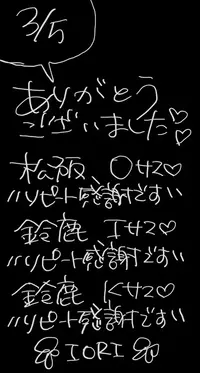 3/5
ありがとう
ございました♡♡
松阪 Oサス♡
〃リピート感謝です〃
鈴鹿 Iサス♡
〃リピート感謝です〃
鈴鹿 Kサス♡
〃リピート感謝です〃
IORI